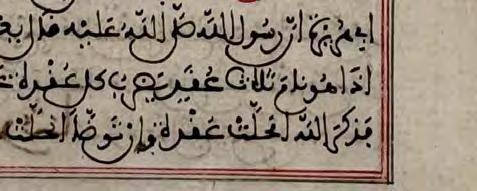 ابي هريرة ان رسول الله صلى الله عليه قال
اذا هو نام ثلاث عقد يضرب كل عقدة
فذكر الله انحلت عقدة وان توضأ انحلت